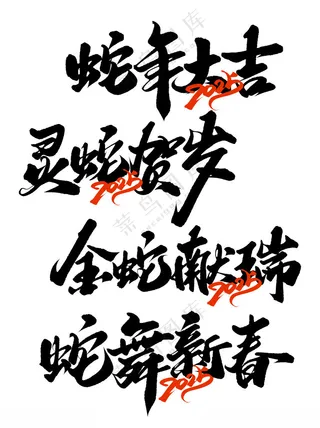 蛇年大吉
2025
灵蛇贺岁
2025
金蛇献瑞
2025
蛇舞新春
2025
菜鸟图库